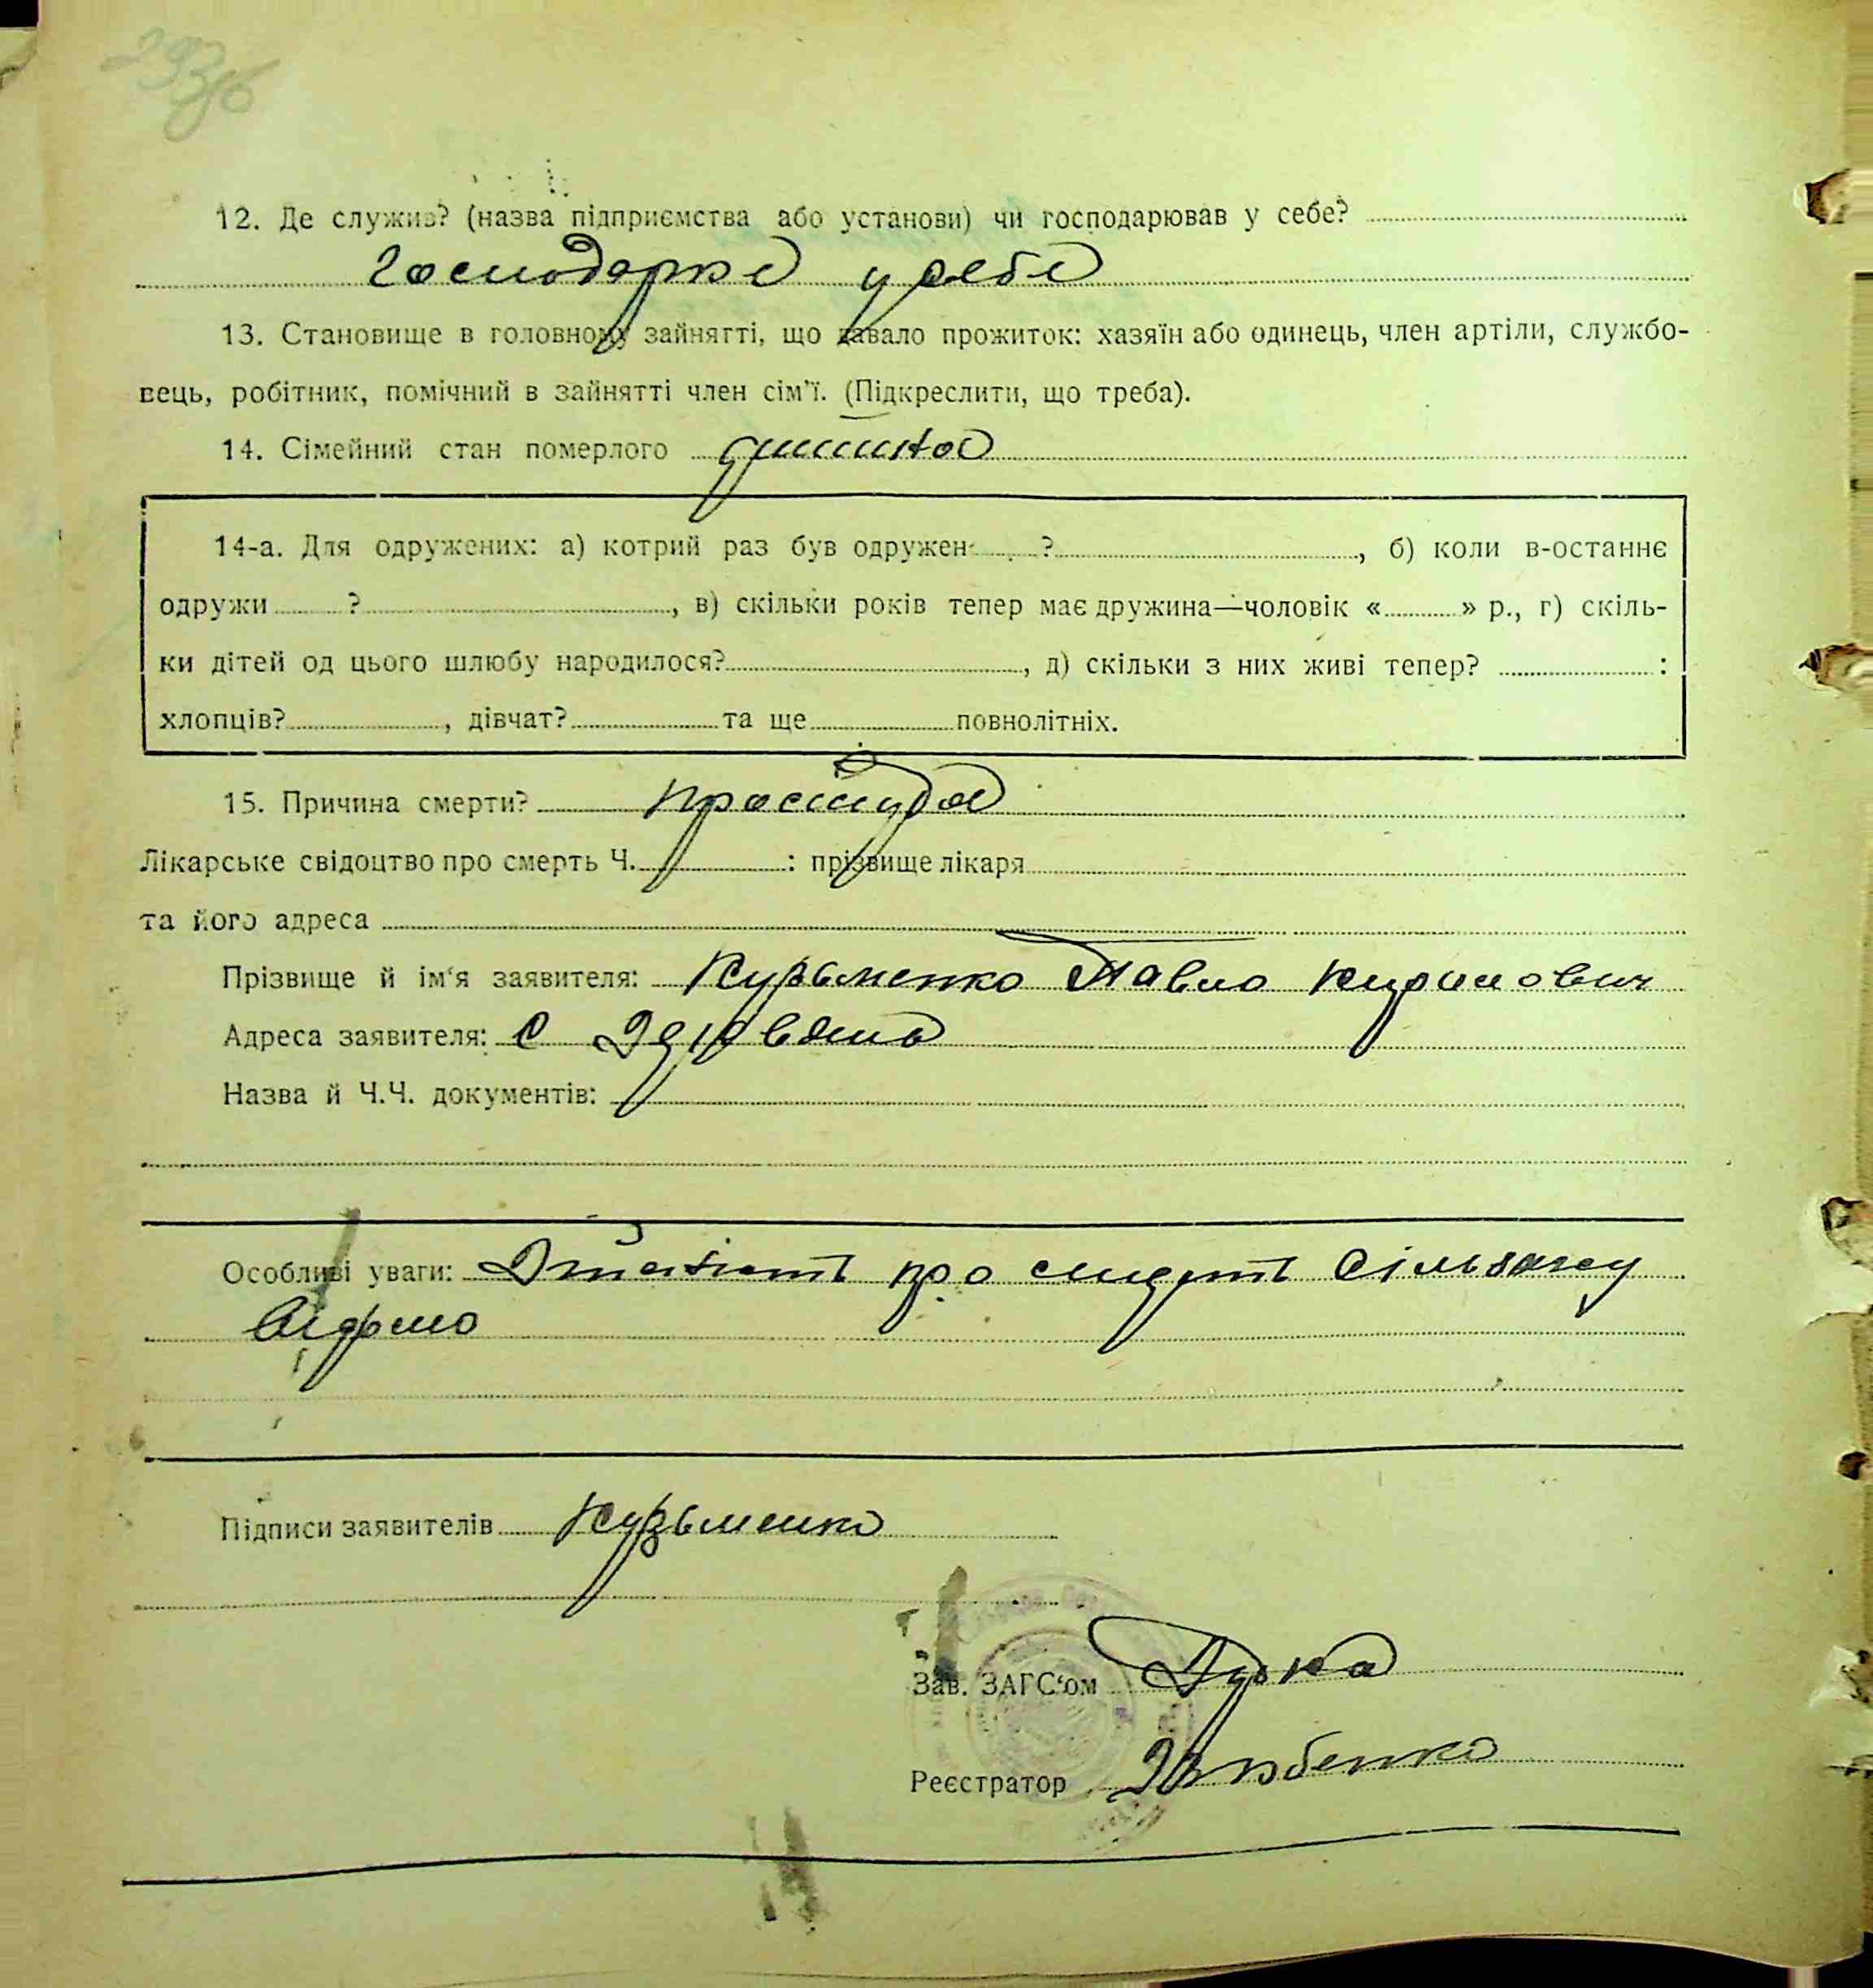 12. Де служив? (назва підприємства або установи) чи господарював у себе?
Господарка у себе
13. Становище в головному зайнятті, що давало прожиток: хазяїн або одинець, член артіли, службо-
вець, робітник, помічний в зайнятті член сім'ї. (Підкреслити, що треба).
14. Сімейний стан померлого
14-а. Для одружених: а) котрий раз був одружен ?, б) коли в-останнє
одружи ?, в) скільки років тепер має дружина—чоловік « » р., г) скіль-
ки дітей од цього шлюбу народилося?, д) скільки з них живі тепер? :
хлопців?, дівчат? та ще повнолітніх.
15. Причина смерти? простуда
Лікарське свідоцтво про смерть Ч. : прізвище лікаря
та його адреса
Прізвище й ім'я заявителя: Кузьменко Павло Кирилович
Адреса заявителя: С
Назва й Ч.Ч. документів:
Особливі уваги: про смерть
Підписи заявителів Кузьменко
Зав. ЗАГС'ом
Реєстратор